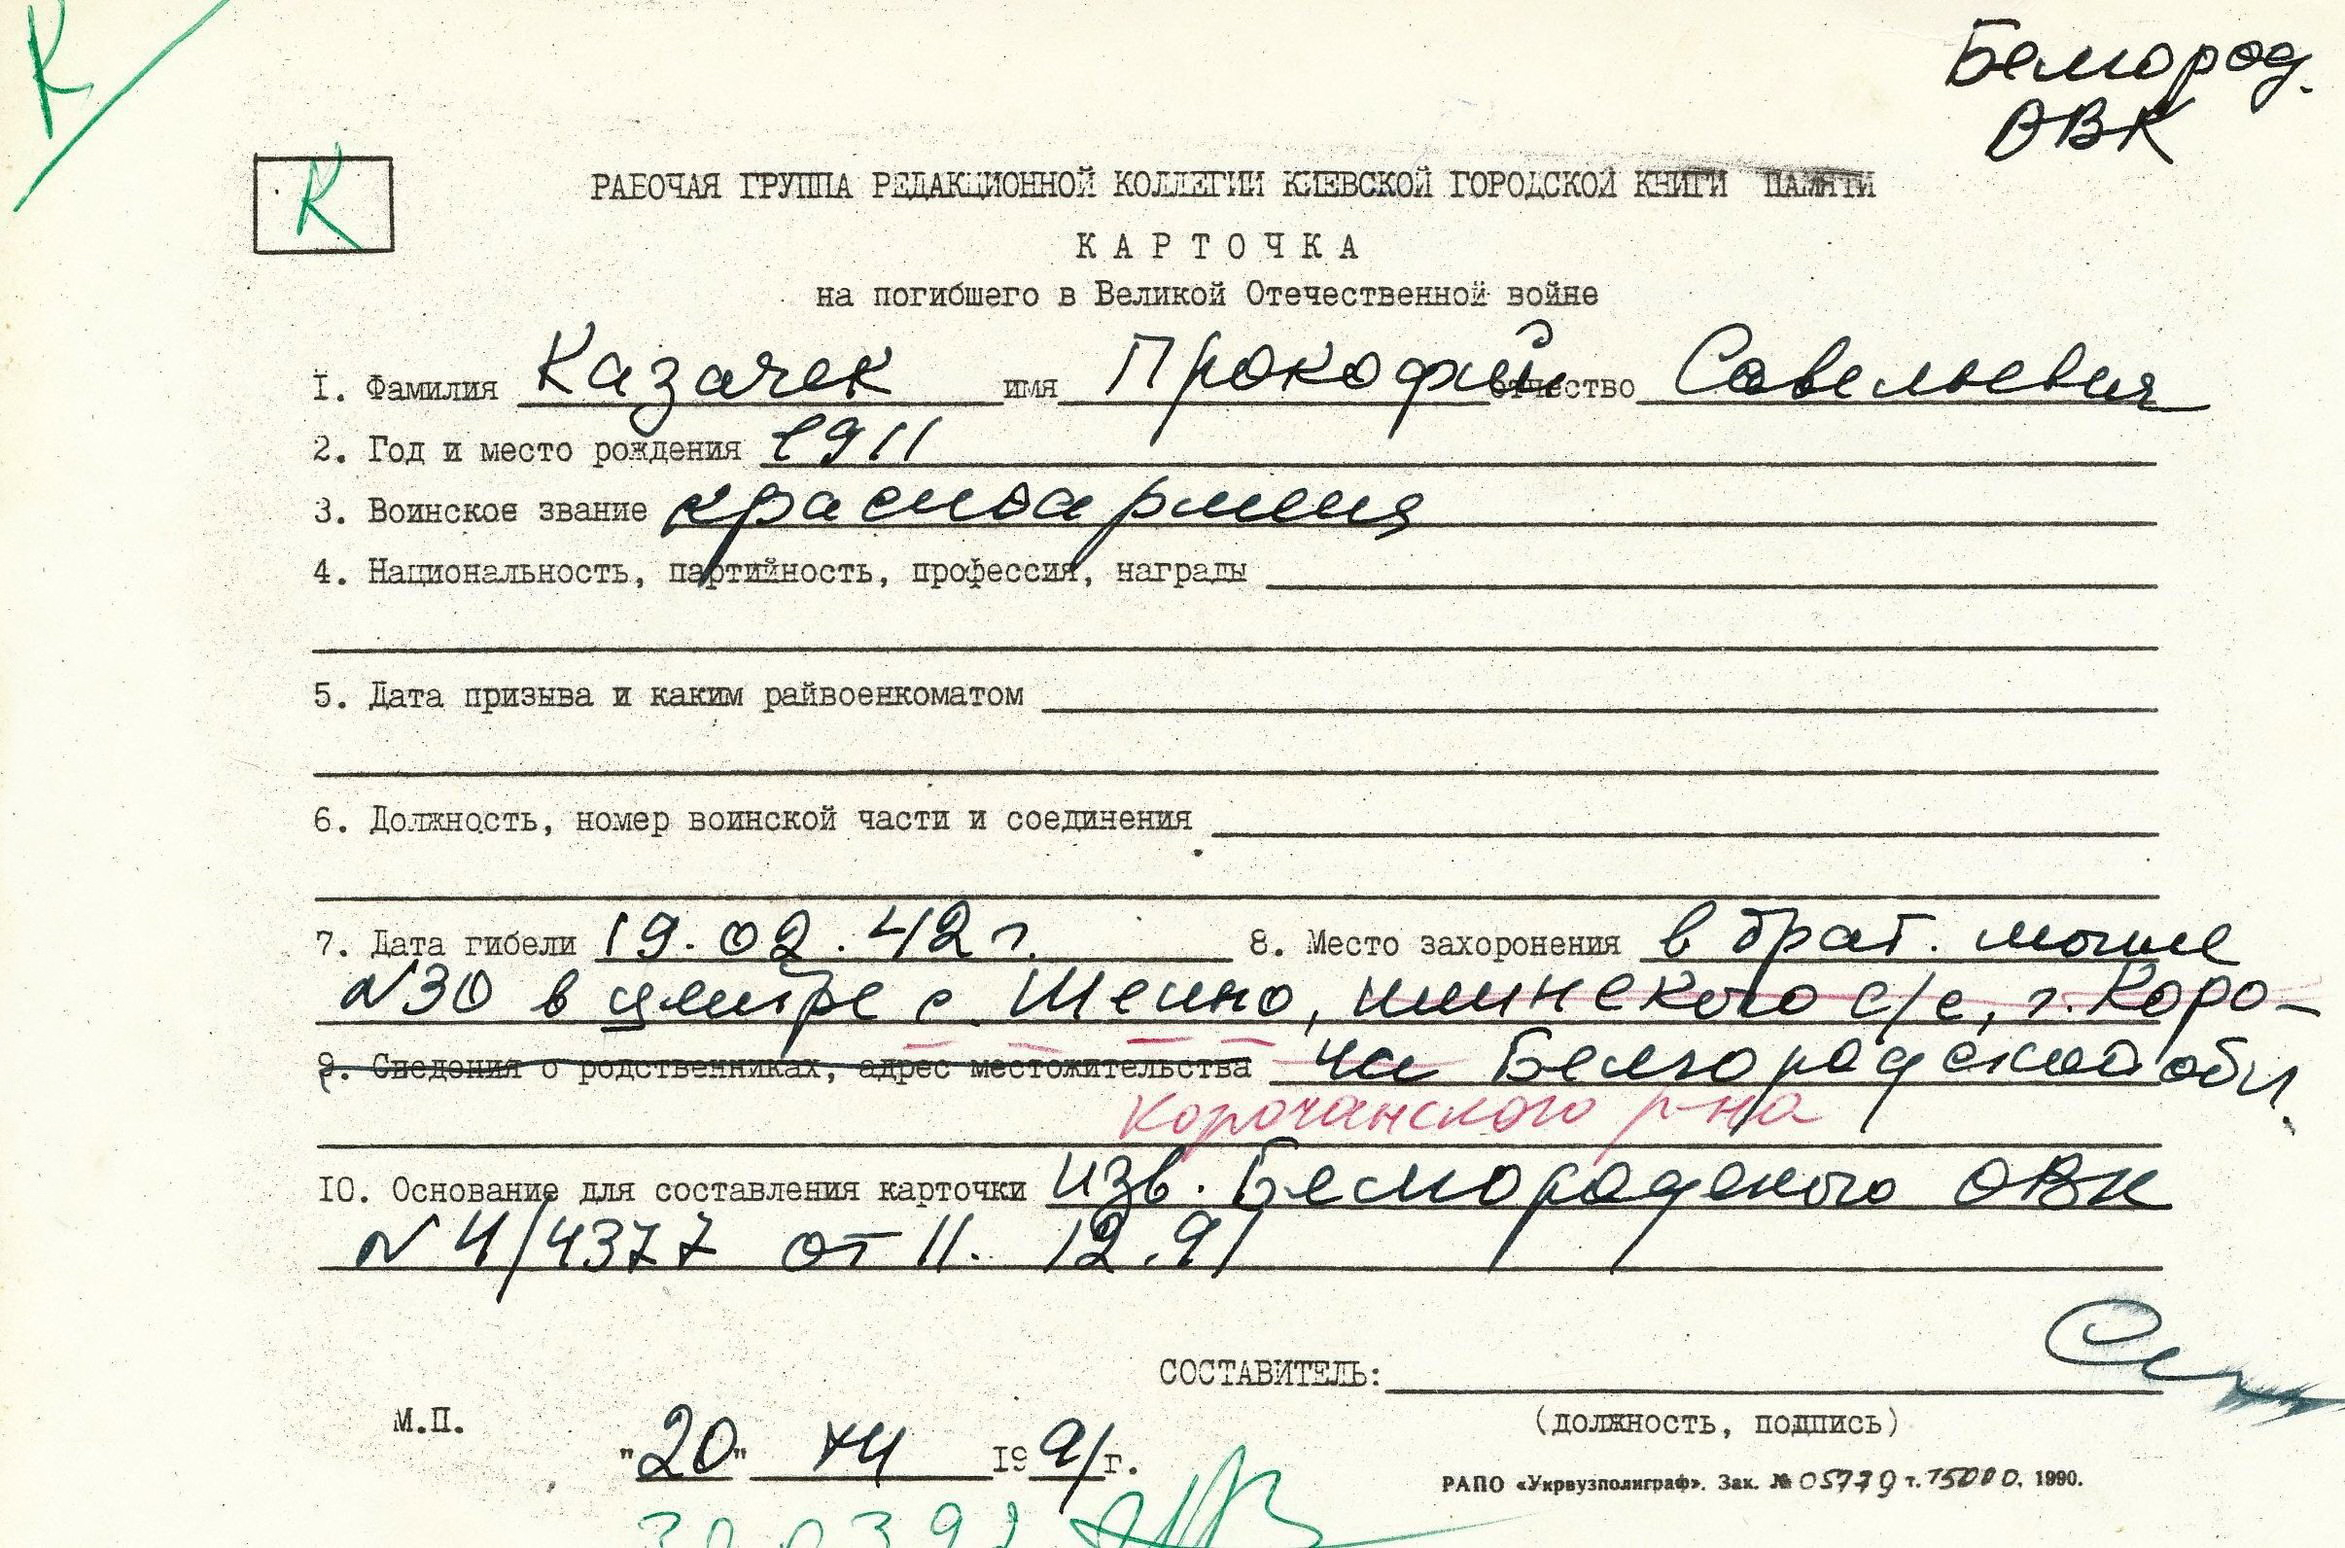 К
Белгород.
ОВК
К
РАБОЧАЯ ГРУППА РЕДАКЦИОННОЙ КОЛЛЕГИИ КИЕВСКОЙ ГОРОДСКОЙ КНИГИ ПАМЯТИ
КАРТОЧКА
на погибшего в Великой Отечественной войне
1. Фамилия Казачек имя Прокофий отчество Савельевич
2. Год и место рождения 1911
3. Воинское звание красноармеец
4. Национальность, партийность, профессия, награды
5. Дата призыва и каким райвоенкоматом
6. Должность, номер воинской части и соединения
7. Дата гибели 19.02.42 г. 8. Место захоронения в брат. могиле
№30 в центре с. Шеино, с/с, г. Коро-
9. Сведения о родственниках, адрес местожительства ча Белгородской обл.
Корочанского р-на
10. Основание для составления карточки изв. Белгородского ОВК
№ 4/4377 от 11. 12.91
СОСТАВИТЕЛЬ:
(должность, подпись)
М.П.
"20" XII 1991г.
РАПО «Укрвузполиграф». Зак. № 05779 т. 15000. 1990.